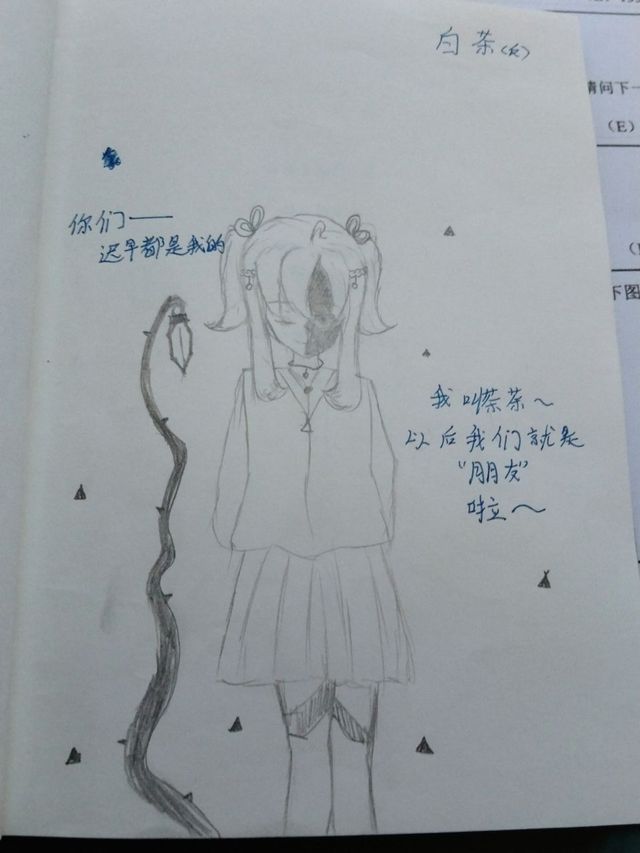 白茶(反)
你们——
迟早都是我的
我叫茶茶～
以后我们就是
"朋友"
啦～
请问下一
(E)
下图